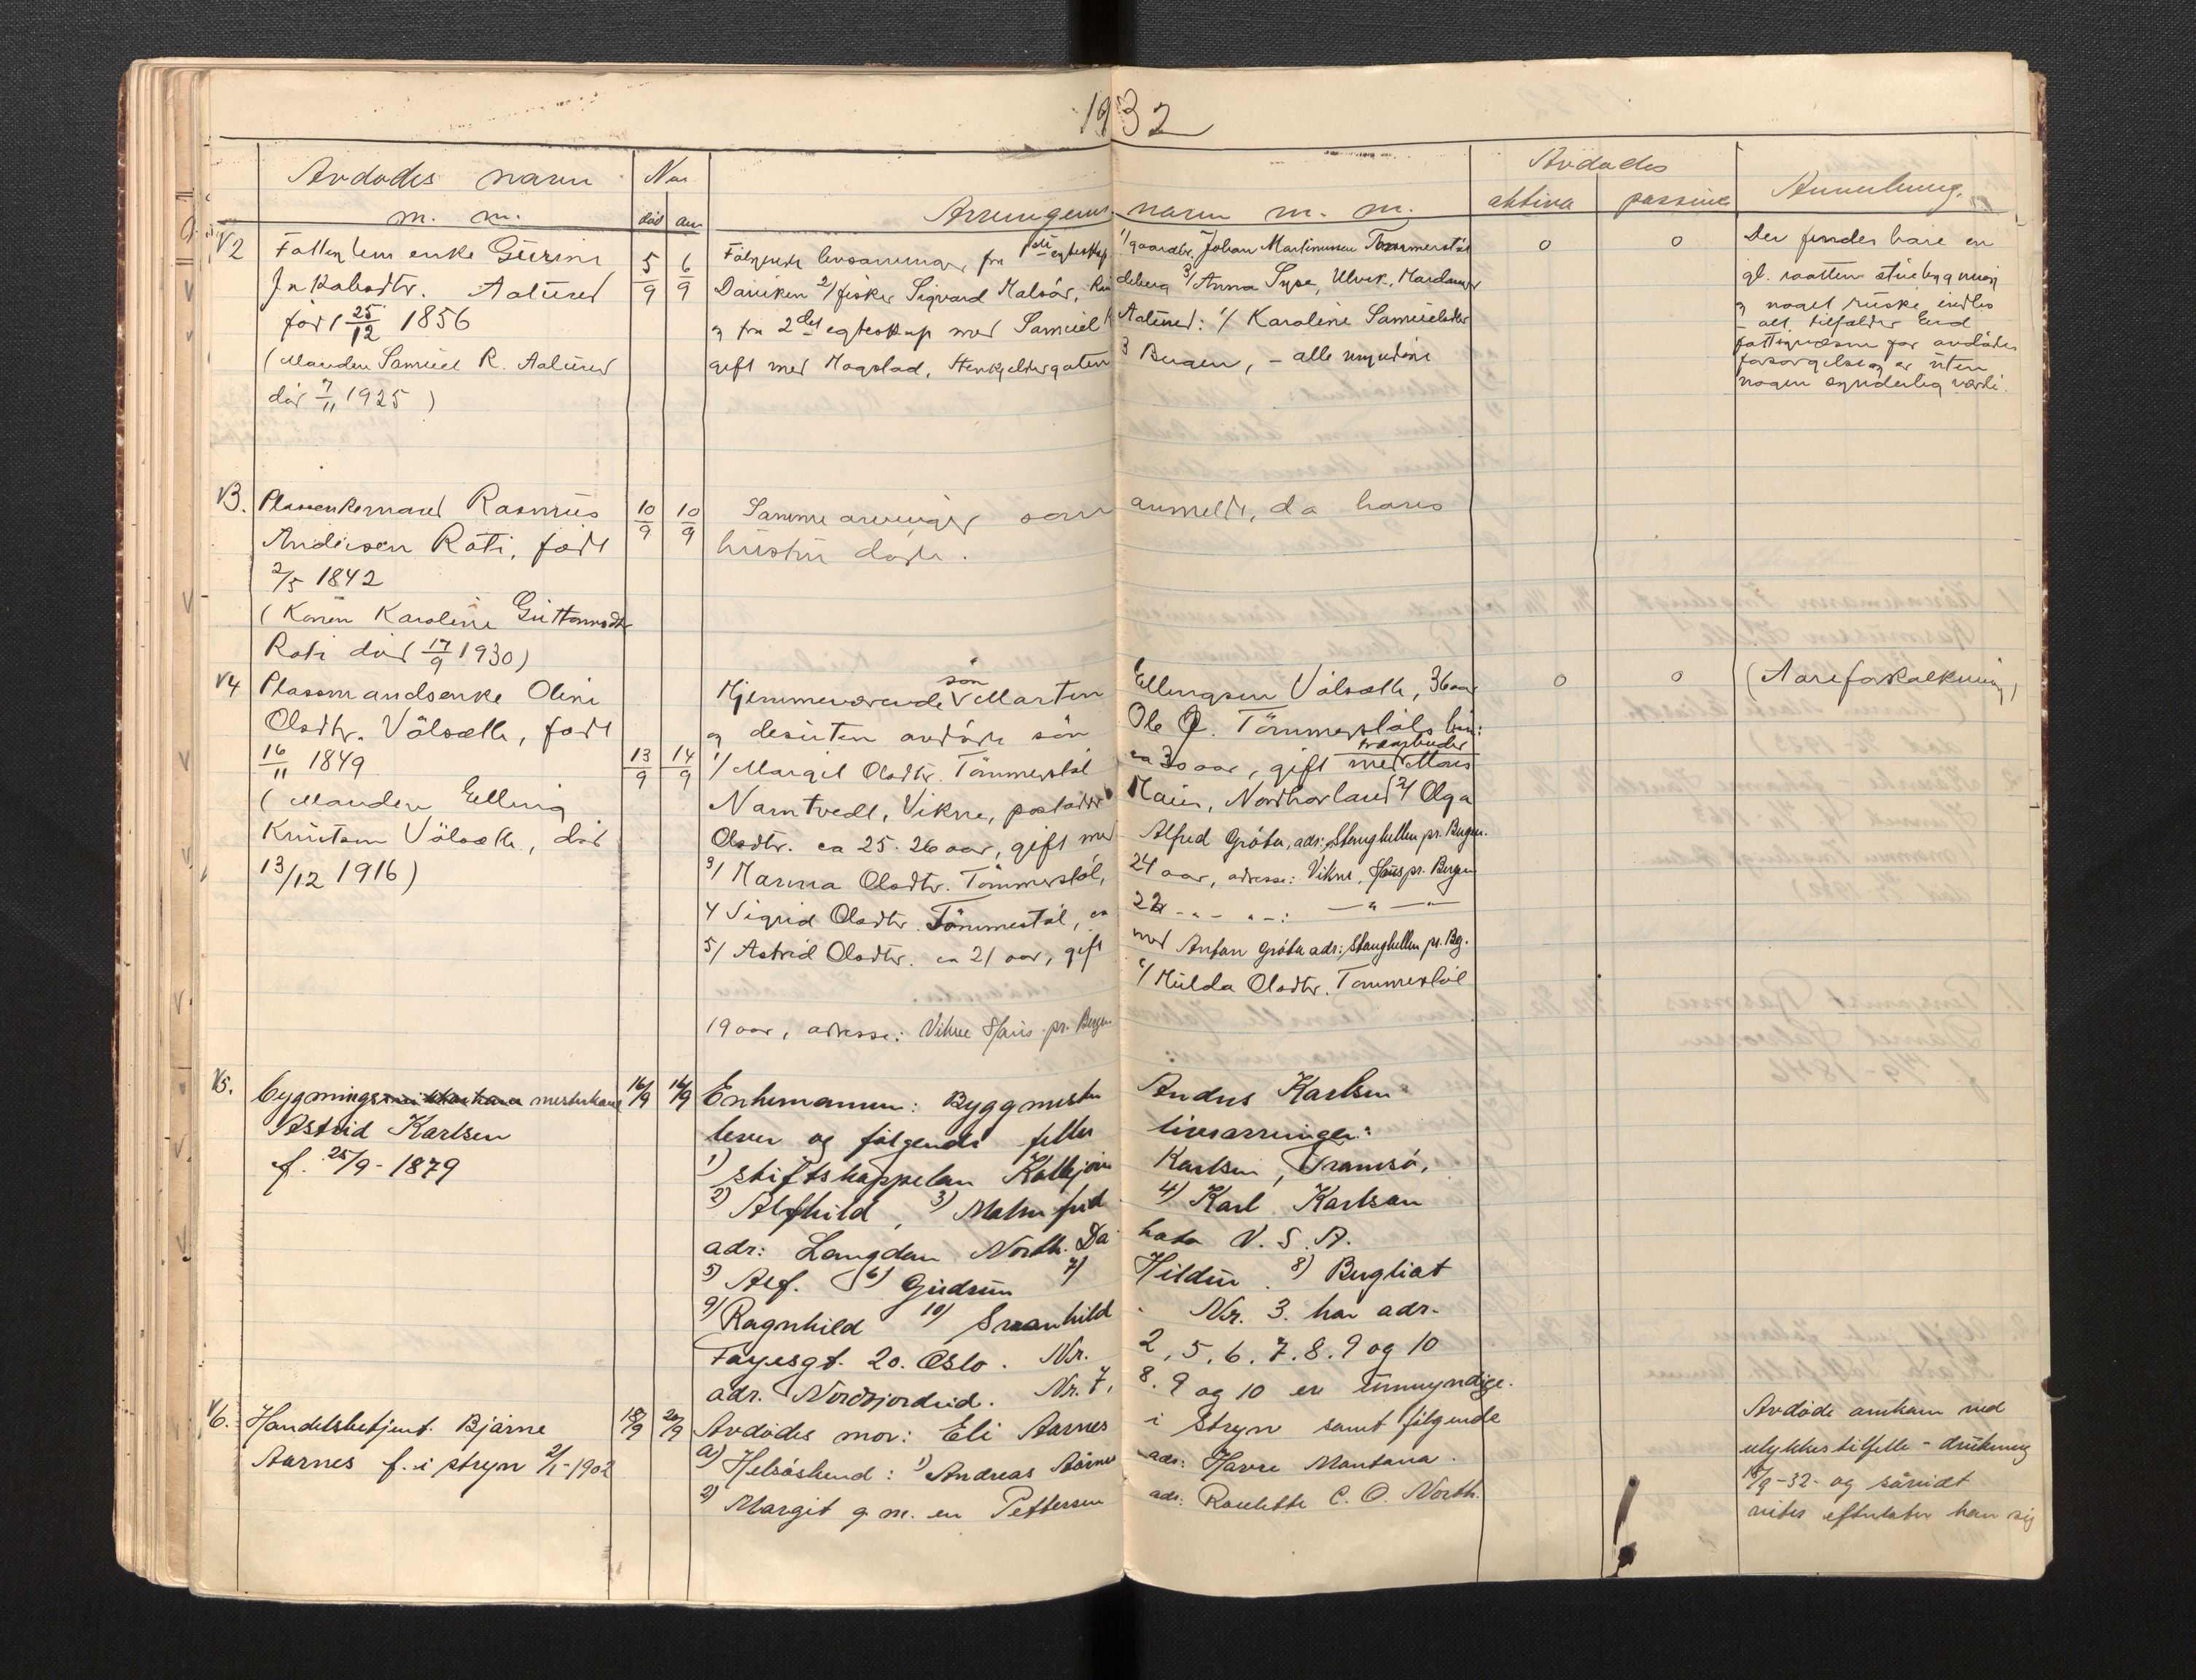 1932
Avdødes navn
m. m.
Naar
død anm
Arvingenes navn m. m.
Avdødes
aktiva passiva
Anmerkning.
V2 Fattiglem enke Gurine
Jakobsdtr. Aalured
født 25/12 1856
(Manden Samuel R. Aalured
død 7/11 1925)
5/9 6/9
Følgende livsarvinger fra 1ste egteskap 1/ gaardbr. Johan Martinussen Tømmerstøl
Daviken 2/ fisker Sigvard Maløs, 3/ Anna Syse, Ulvik, Hardanger
og fra 2det egteskap med Samuel R. Aalured: 1/ Karoline Samuelsdtr
gift med Hogstad, Stenkjeldergaten 3 Bergen, – alle myndige
0 0
Der findes bare en
gl. raatten stuebygning
og noget rusk indbo
– alt tilfalder Eid
fattigvæsen for avdødes
forsørgelse og er uten
nogen synderlig værdi.
V3. Rasmus
Andersen Roti, født
2/5 1842
(Konen Karoline Guttormsdtr
Roti død 17/9 1930)
10/9 10/9
Samme arvinger som anmeldt, da hans
hustru døde.
V4 Plassmandsenke Oline
Olsdtr. Vålsætte, født
16/11 1849
(Manden Elling
Knutsen Vålsætte, død
13/12 1916)
13/9 14/9
Hjemmeværende sön Marten Ellingsen Vålsætte, 36 aar
og desuten avdøde sön Ole E. Tömmerstöls barn:
1/ Margit Olsdtr. Tömmerstöl ca 30 aar, gift med Mons
Namtvedt, Vikne, Nordhorland 2/ Olga
Olsdtr. ca 25-26 aar, gift med Alfred Gröta, adr: Stanghellen pr. Bergen.
3/ Marna Olsdtr. Tömmerstöl, 24 aar, adresse: Vikne, Haus pr. Bergen
4 Sigrid Olsdtr. Tömmerstöl, ca 22 -„- „-: —„—
5/ Astrid Olsdtr. ca 21 aar, gift med Anfan Gröta adr: Stanghellen pr. Bg.
6/ Hulda Olsdtr. Tømmerstöl
19 aar, adresse: Vikne Haus pr. Bergen
0 0
(Aareforkalkning)
V5. bygnings mesterkone
Astrid Karlsen
f. 25/9-1879
16/9 16/9
Enkemannen: Byggmester Andreas Karlsen
lever og følgende felles livsarvinger:
1) stiftskappelan Kolbjørn Karlsen, Tromsø,
2) Alfhild, 3) Malmfrid 4) Karl Karlsen
adr: Langdon North. Dakota U. S. A.
5) Alf. 6) Gudrun 7) Hildur 8) Bergliot
9) Ragnhild 10) Svanhild. Nr. 3. har adr.
Fayesgt. 20. Oslo. Nr. 2, 5. 6. 7. 8. 9 og 10
adr. Nordfjordeid. Nr. 7, 8. 9 og 10 er umyndige.
V6. Handelsbetjent Bjarne
Aarnes f. i Stryn 2/1-1902
18/9 20/9
Avdødes mor: Eli Aarnes i Stryn samt følgende
a) Helsøskend: 1) Andreas Aarnes adr: Havre Montana.
2) Margit g. m. en Pettersen adr: Roulette C. O. North.
Avdøde omkom ved
ulykkestilfelle - drukning
18/9-32- og såvidt
vites efterlater han sig